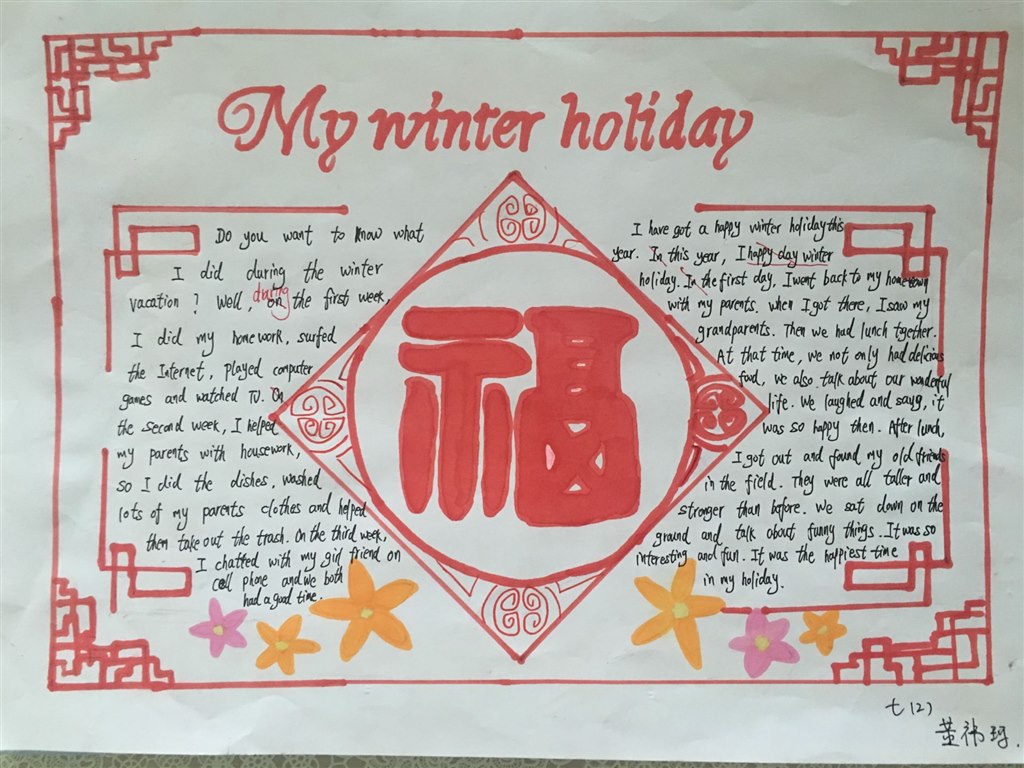 My winter holiday
Do you want to know what
I did during the winter
vacation? Well, on the first week,
during
I did my homework, surfed
the Internet, played computer
games and watched TV. On
the second week, I helped
my parents with housework,
so I did the dishes, washed
lots of my parents clothes and helped
then take out the trash. On the third week,
I chatted with my girl friend on
cell phone and we both
had a good time.
福
I have got a happy winter holiday this
year. In this year, I happy day winter
holiday. In the first day, I want back to my hometown
with my parents. when I got there, I saw my
grandparents. Then we had lunch together.
At that time, we not only had delicious
food, we also talk about our wonderful
life. We laughed and sayg, it
was so happy then. After lunch,
I got out and found my old friends
in the field. They were all taller and
stronger than before. We sat down on the
ground and talk about funny things. It was so
interesting and fun. It was the happiest time
in my holiday.
七(2)
董祎